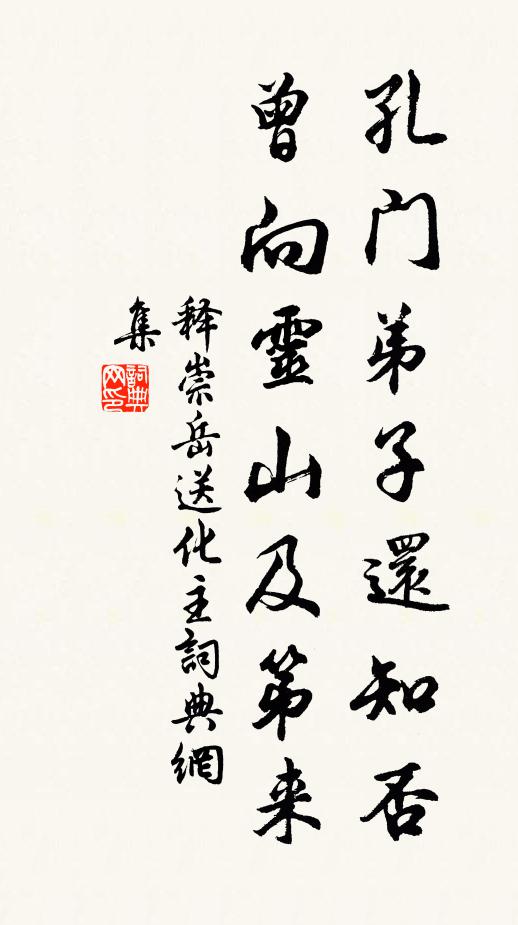 孔门弟子還知否
曾向靈山及第来
释崇岳送化主詞典網
集
詞典
网印